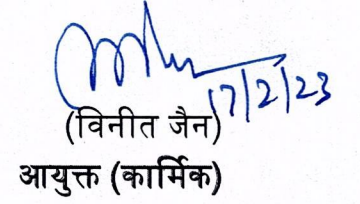 17/2/23
(विनीत जैन)
आयुक्त (कार्मिक)